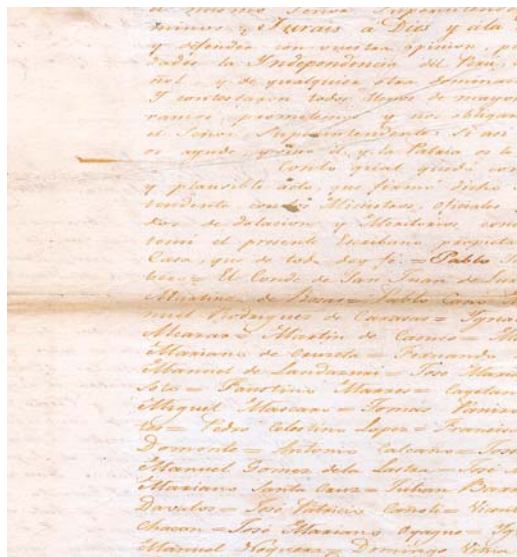 el mismo Señor Superintend
minos, ¿Jurais a Dios y ála
y defender con vuestra opinion, p
dades la Yndependencia del Perú,
ñol y de qualquiera otra dominac
Y contestaron todos llenos de mayor
ramos, prometemos y nos obligam
el Señor Superintendente. Si asi
os ayude y sino él, y la Patria os la
Conlo qual quedó con
y plausible acto, que firmó dicho
tendente con los Ministros, oficiales
dos de dotacion y Meritorios com
temi el presente Escribano propieta
Casa, que de todo doy fé. = Pablo
El Conde de San Juan de Lu
Martinez de Rosas = Pablo Cano
nuel Rodriguez de Carasas = Ygna
Alcaraz = Martin de = M
Mariano de = Fernando
Manuel de Landazuri = Jose Ma
Faustino Marcos = Cayetan
Miguel Mascaro = Tomas Ramire
Pedro Celestino Lopez = Francisco
Domonte = Antonio Calcano = José
Manuel Gomez dela Lastra = José
Mariano Santa Cruz = Julian Bar
Davalos = José Patricio = Vicent
Chacon = José Mariano Oyague = Yg
Manuel Noguera = Domingo